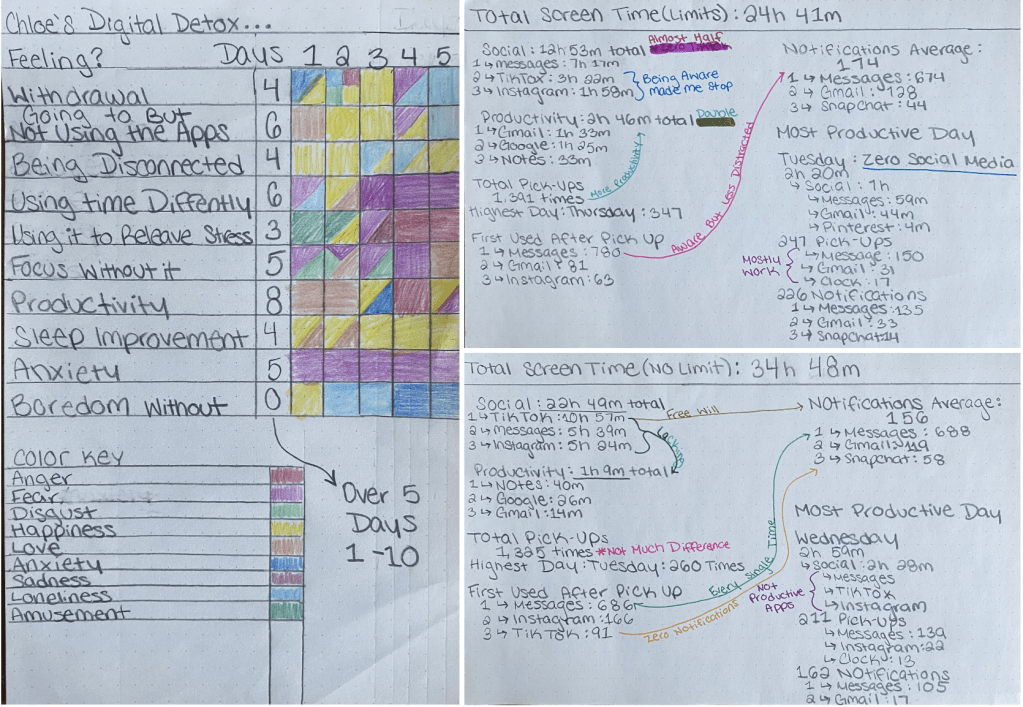 Chloe's Digital Detox...
Feeling? Days 1 2 3 4 5
Withdrawal 4
Going to But
Not Using the Apps 6
Being Disconnected 4
Using time Diffently 6
Using it to Releave Stress 3
Focus Without it 5
Productivity 8
Sleep Improvement 4
Anxiety 5
Boredom Without 0
Over 5
Days
1-10
Color Key
Anger
Fear
Disgust
Happiness
Love
Anxiety
Sadness
Loneliness
Amusement
Total Screen Time (Limits): 24h 41m
Almost Half
Social: 12h 53m total
1→messages: 7h 17m
2→TikTok: 3h 22m
3→Instagram: 1h 58m
Being Aware
made me stop
Productivity: 2h 46m total Double
1→Gmail: 1h 33m
2→Google: 1h 25m
3→Notes: 33m
More Productivity
Total Pick-Ups
1,391 times
Highest Day: Thursday: 347
First Used After Pick Up
1→Messages: 780
2→Gmail: 81
3→Instagram: 63
Aware But Less Distracted
Notifications Average:
174
1→Messages: 674
2→Gmail: 128
3→Snapchat: 44
Most Productive Day
Tuesday: Zero Social Media
2h 20m
↳Social: 1h
↳Messages: 59m
↳Gmail: 44m
↳Pinterest: 4m
247 Pick-Ups
Mostly
Work
↳Message: 150
↳Gmail: 31
↳Clock: 17
226 Notifications
1↳Messages: 135
2↳Gmail: 33
3↳Snapchat: 14
Total Screen Time (No Limit): 34h 48m
Social: 22h 49m total
1→TikTok: 10h 57m
2→Messages: 5h 39m
3→Instagram: 5h 24m
Free Will
Lacking
Productivity: 1h 9m total
1→Notes: 40m
2→Google: 26m
3→Gmail: 14m
Total Pick-Ups
1,325 times *Not Much Difference
Highest Day: Tuesday: 260 Times
First Used After Pick Up
1→Messages: 686
2→Instagram: 166
3→TikTok: 91
Every Single Time
Zero Notifications
Notifications Average:
156
1→Messages: 688
2→Gmail: 119
3→Snapchat: 58
Most Productive Day
Wednesday
2h 59m
↳Social: 2h 28m
Not
Productive
Apps
↳Messages
↳TikTok
↳Instagram
211 Pick-Ups
↳Messages: 139
↳Instagram: 22
↳Clock: 13
162 Notifications
1↳Messages: 105
2↳Gmail: 17